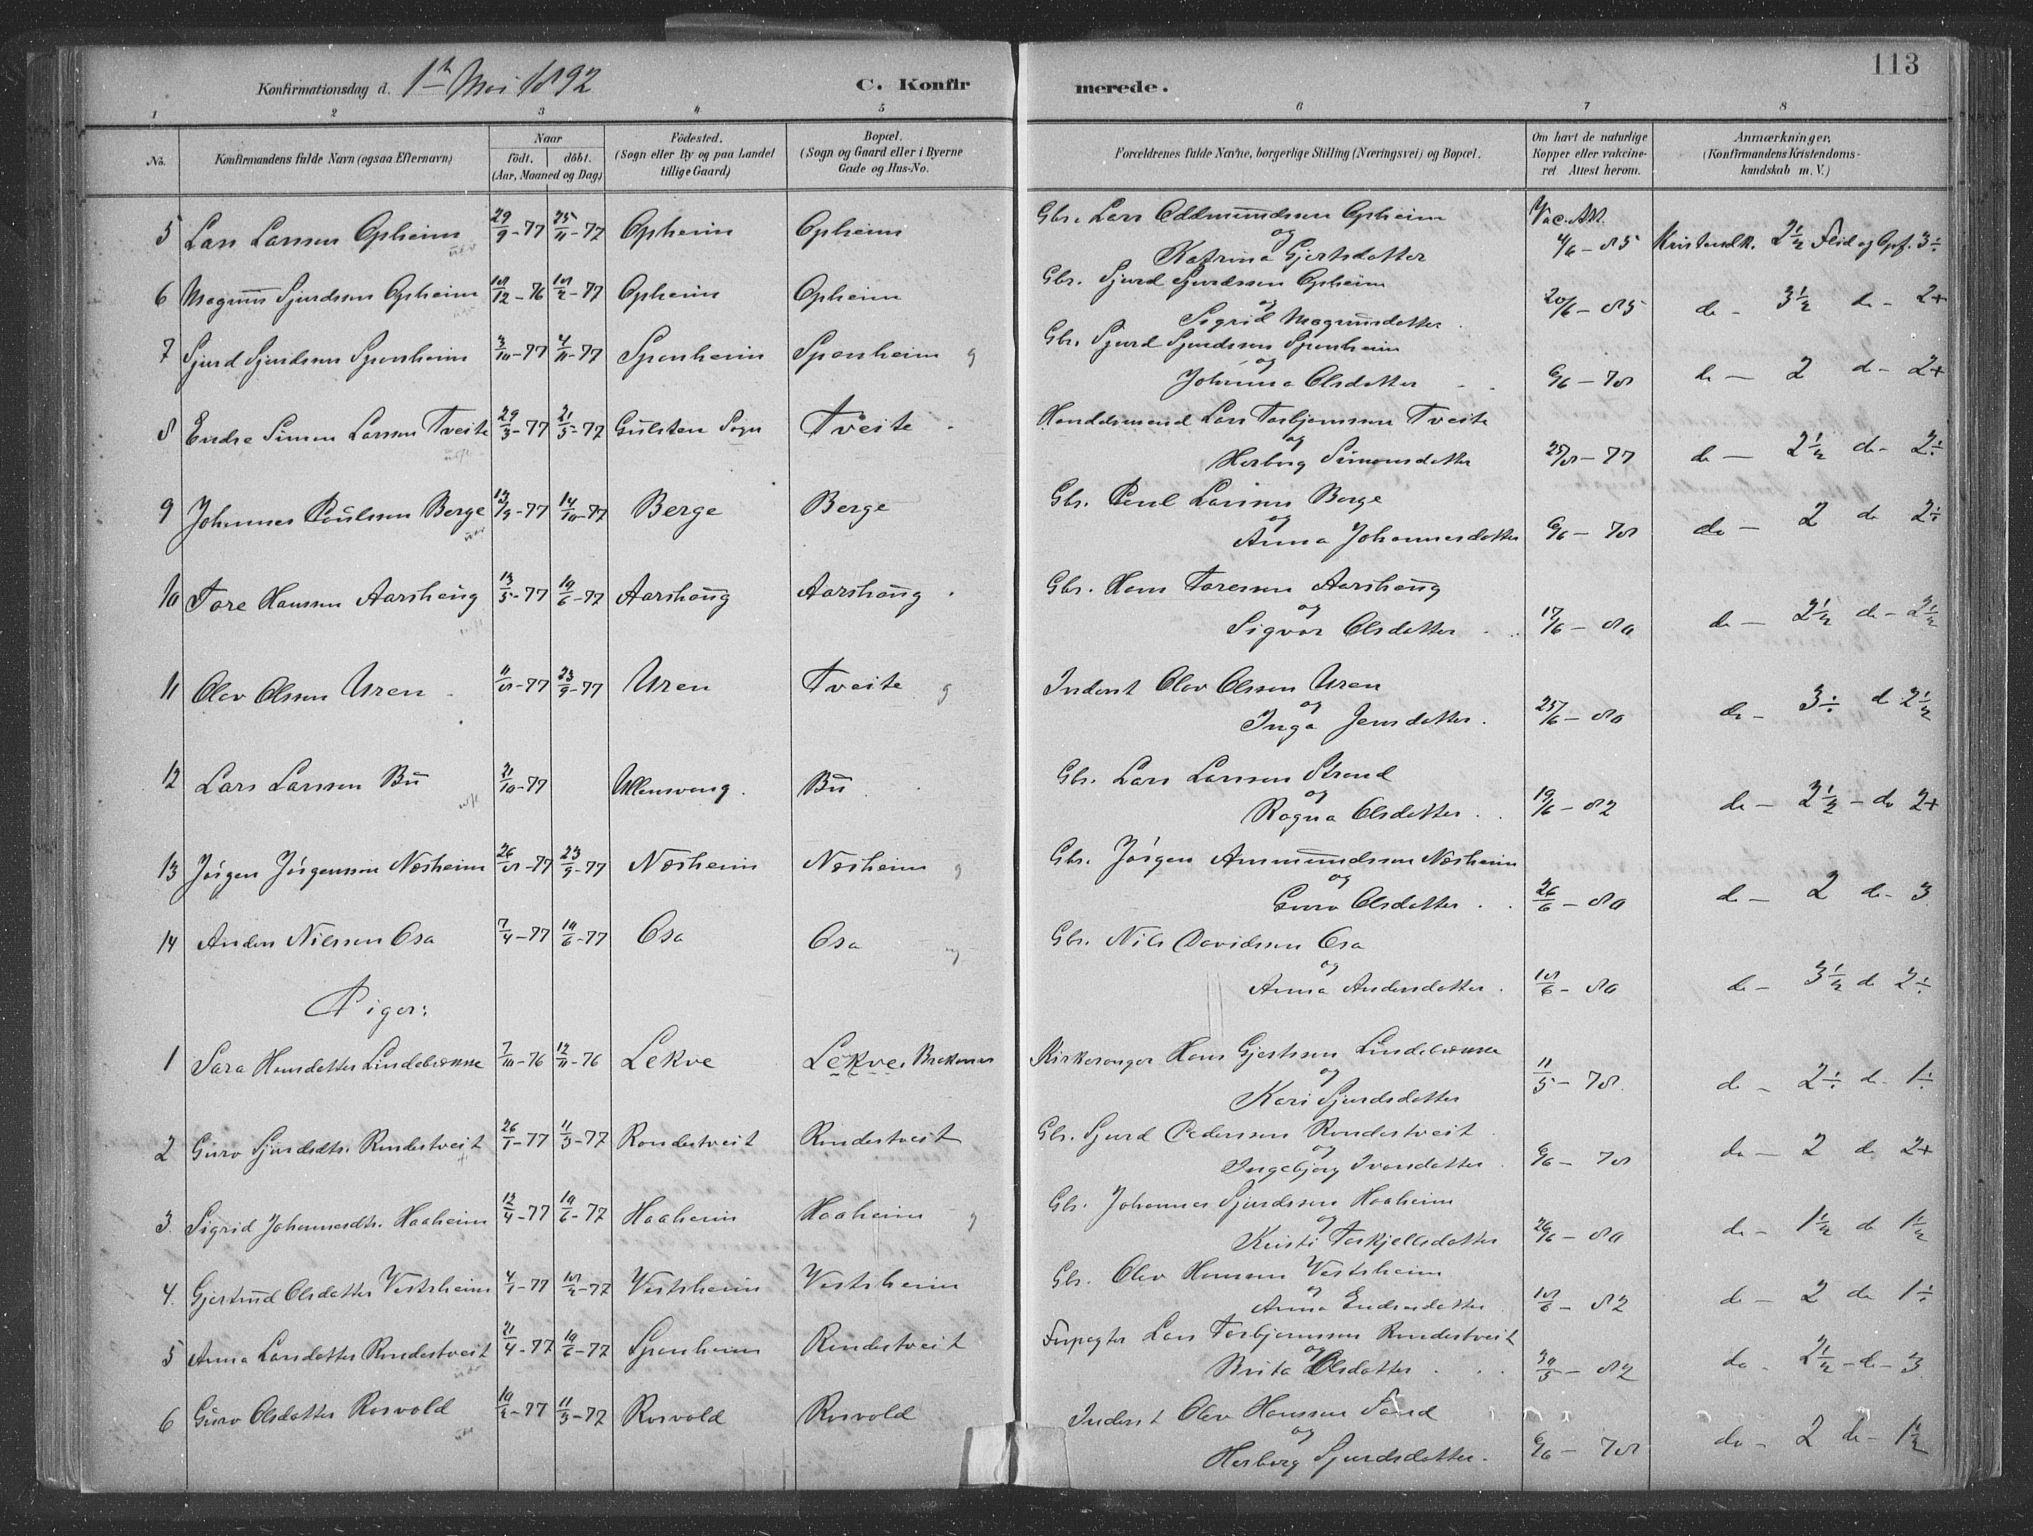 113
Konfirmationsdag d. 1ste Mai 1892 C. Konfirmerede.
1 2 3 4 5 6 7 8
No. Konfirmandens fulde Navn (ogsaa Efternavn) Naar födt. döbt. (Aar, Maaned og Dag.) Födested. (Sogn eller By og paa Landet tillige Gaard) Bopæl. (Sogn og Gaard eller i Byerne Gade og Hus-No. Forældrenes fulde Navne, borgerlige Stilling (Næringsvei) og Bopæl. Om havt de naturlige Kopper eller vakcineret Attest herom. Anmærkninger, (Konfirmandens Kristendomskundskab m. V.)
5 Lars Larssen Opheim 29/9-77 25/11-77 Opheim Opheim Gbr. Lars Oddmundssen Opheim og Katrina Gjertsdatter Vac. Att. 4/6-85 Kristendk. 2½ Flid og Opf. 3÷
6 Magnus Sjurdssen Opheim 18/12-76 18/2-77 Opheim Opheim Gbr. Sjurd Sjurdssen Opheim og Sigrid Magnusdatter 20/6-85 do - 3½ do - 2+
7 Sjurd Sjurdssen Sponheim 3/10-77 4/11-77 Sponheim Sponheim Gbr. Sjurd Sjurdssen Sponheim og Johanna Olsdatter 6/6-78 do - 2 do - 2+
8 Endre Simon Larssen Tveite 29/3-77 21/5-77 Gulsten Sogn Tveite Handelsmand Lars Torbjørnssen Tveite og Herborg Simonsdatter 25/8-77 do - 2½ do - 2÷
9 Johannes Poulssen Berge 13/9-77 14/10-77 Berge Berge Gbr. Poul Larssen Berge og Anna Johannesdatter 6/6-78 do - 2 do 2÷
10 Tore Hanssen Aarshaug 13/5-77 10/6-77 Aarshaug Aarshaug Gbr. Hans Toressen Aarshaug og Sigvor Olsdatter 17/6-80 do - 2½ do - 2½
11 Olav Olssen Uren 11/8-77 23/9-77 Uren Tveite Inderst Olav Olssen Uren og Inga Jensdatter 25/6-80 do - 3÷ do 2½
12 Lars Larssen Bu 21/10-77 Ullensvang Bu Gbr. Lars Larssen Strand og Ragna Olsdatter 19/6-82 do - 2½ - do 2+
13 Jørgen Jørgenssen Næsheim 26/8-77 23/9-77 Næsheim Næsheim Gbr. Jørgen Ammundssen Næsheim og Guro Olsdatter 26/6-80 do - 2 do - 3
14 Anders Nilssen Osa 7/4-77 10/6-77 Osa Osa Gbr. Nils Davidssen Osa og Anna Andersdatter 18/6-80 do - 3½ do 2÷
Piger:
1 Sara Hansdatter Lindebrække 7/10-76 12/11-76 Lekve Lekve, Kirkesanger Hans Gjertssen Lindebrække og Kari Sjurdsdatter 11/5-78 do - 2÷ do - 1÷
2 Guro Sjurdsdtr. Røndestveit 26/1-77 11/3-77 Røndestveit Røndestveit Gbr. Sjurd Pederssen Røndestveit og Ingebjørg Ivarsdatter 6/6-78 do - 2 do 2+
3. Sigrid Johannesdtr. Haaheim 12/4-77 10/6-77 Haaheim Haaheim Gbr. Johannes Sjurdssen Haaheim og Kristi Torkjellsdatter 26/6-80 do - 1½ do 1½
4. Gjertrud Olsdatter Vestrheim 4/1-77 18/2-77 Vestrheim Vestrheim Gbr. Olav Hanssen Vestrheim og Anna Endresdatter 18/6-82 do - 2 do 1÷
5 Anna Larsdatter Røndestveit 21/4-77 10/6-77 Sponheim Røndestveit Forpagter Lars Torbjørnssen Røndestveit og Brita Olsdatter 30/5-82 do - 2½ - do - 3
6 Guro Olsdatter Røsvold 10/2-77 11/3-77 Røsvold Røsvold Inderst Olav Hanssen Sand og Herborg Sjurdsdatter 6/6-78 do - 2 do - 1½